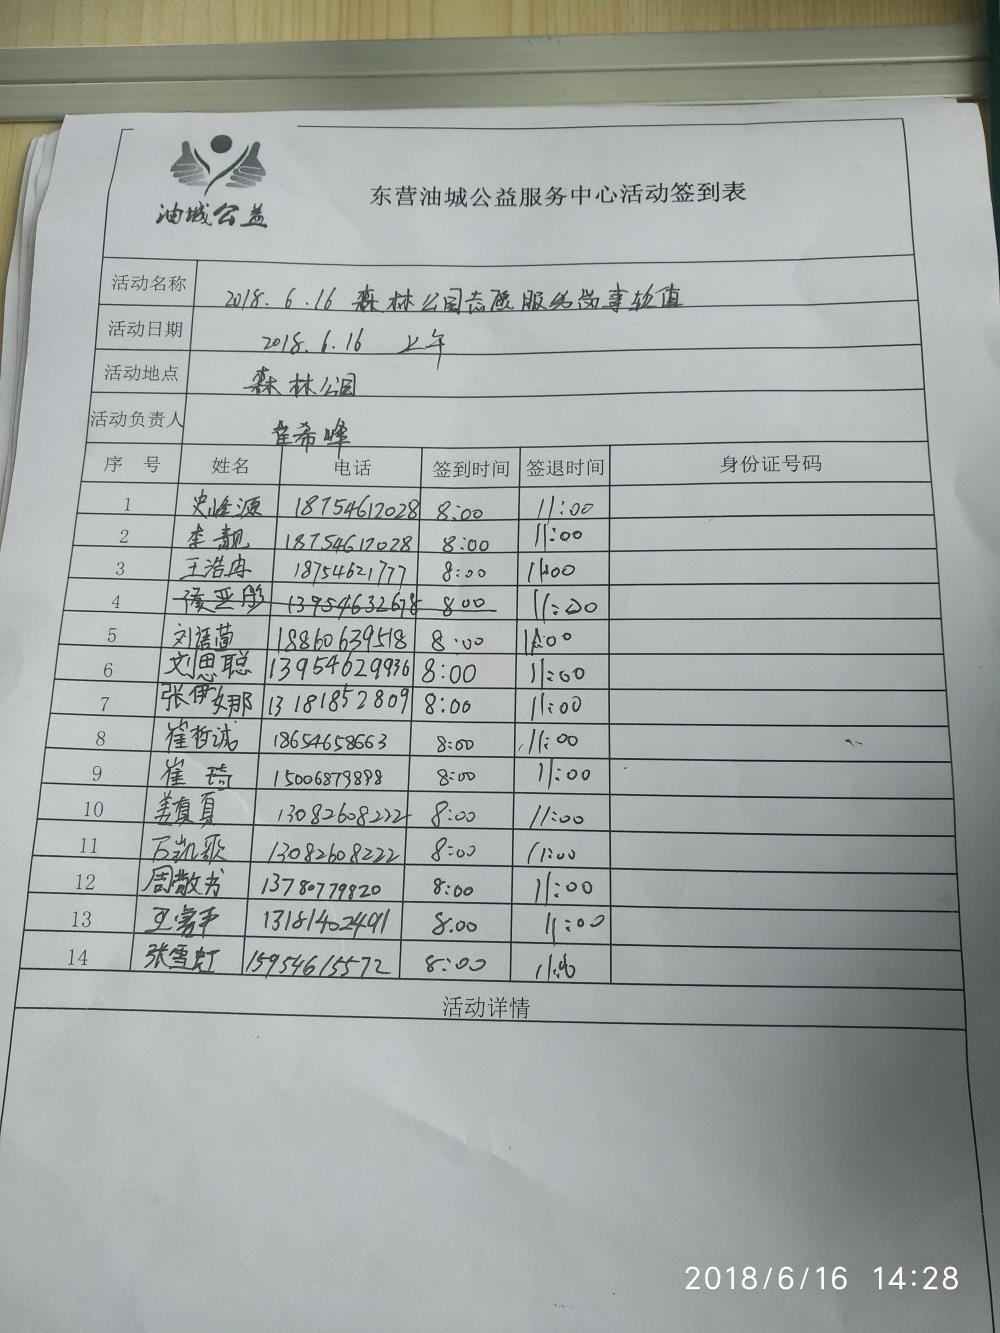 油城公益
东营油城公益服务中心活动签到表
活动名称 2018.6.16 森林公园志愿服务岗事软值
活动日期 2018.6.16 上午
活动地点 森林公园
活动负责人 崔希峰
序 号 姓名 电话 签到时间 签退时间 身份证号码
1 史峰源 18754612028 8:00 11:00
2 李靓 18754612028 8:00 11:00
3 王浩冉 18754621777 8:00 11:00
4 侯亚彤 13954632678 8:00 11:00
5 刘语萱 18860639518 8:00 11:00
6 刘思聪 13954629936 8:00 11:00
7 张伊娜 13181852809 8:00 11:00
8 崔哲诚 18654658663 8:00 11:00
9 崔琦 15006879898 8:00 11:00
10 姜真真 13082608222 8:00 11:00
11 石凯歌 13082608222 8:00 11:00
12 周敬书 13780779820 8:00 11:00
13 王 13181402491 8.00 11:00
14 张雪虹 15954615572 8:00 11:00
活动详情
2018/6/16 14:28